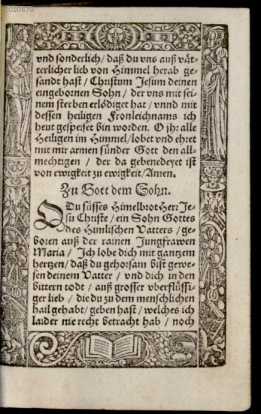 vnd sonderlich / daß du vns auß vät-
terlicher lieb von Himmel herab ge-
sandt hast / Christum Jesum deinen
eingebornen Sohn / der vns mit sei-
nem sterben erlödiget hat / vnnd mit
dessen heiligen Fronleichnams ich
heut gespeiset bin worden. O jhr alle
Heiligen im Himmel / lobet vnd ehret
mit mir armen sünder Gott den all-
mechtigen / der da gebenedeyet ist
von ewigkeit zu ewigkeit / Amen.
Zu Gott dem Sohn.
O Du süsses Himelbrot Herr Je-
su Christe / ein Sohn Gottes
des Himlischen Vatters / ge-
boren auß der rainen Jungfrawen
Maria / Ich lobe dich mit gantzem
hertzen / daß du gehorsam bist gewe-
sen deinem Vatter / vnd dich in den
bittern todt / auß grosser vberflüssi-
ger lieb / die du zu dem menschlichen
hail gehabt / geben hast / welches ich
laider nie recht betracht hab / noch